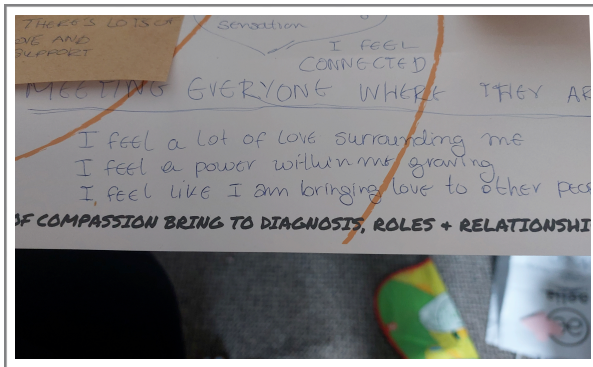 THERE'S LOTS OF
OVE AND
SUPPORT
sensation
I FEEL
CONNECTED
MEETING EVERYONE WHERE THEY AR
I feel a lot of love surrounding me
I feel a power within me growing
I feel like I am bringing love to other peo
OF COMPASSION BRING TO DIAGNOSIS, ROLES + RELATIONSHI